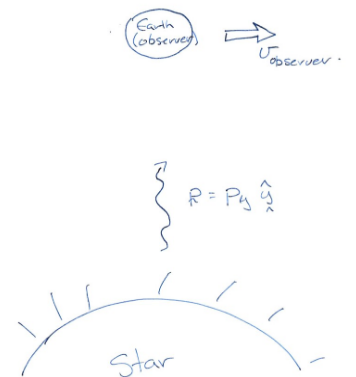 Earth
(observer)
v observer.
R = Py ŷ
Star